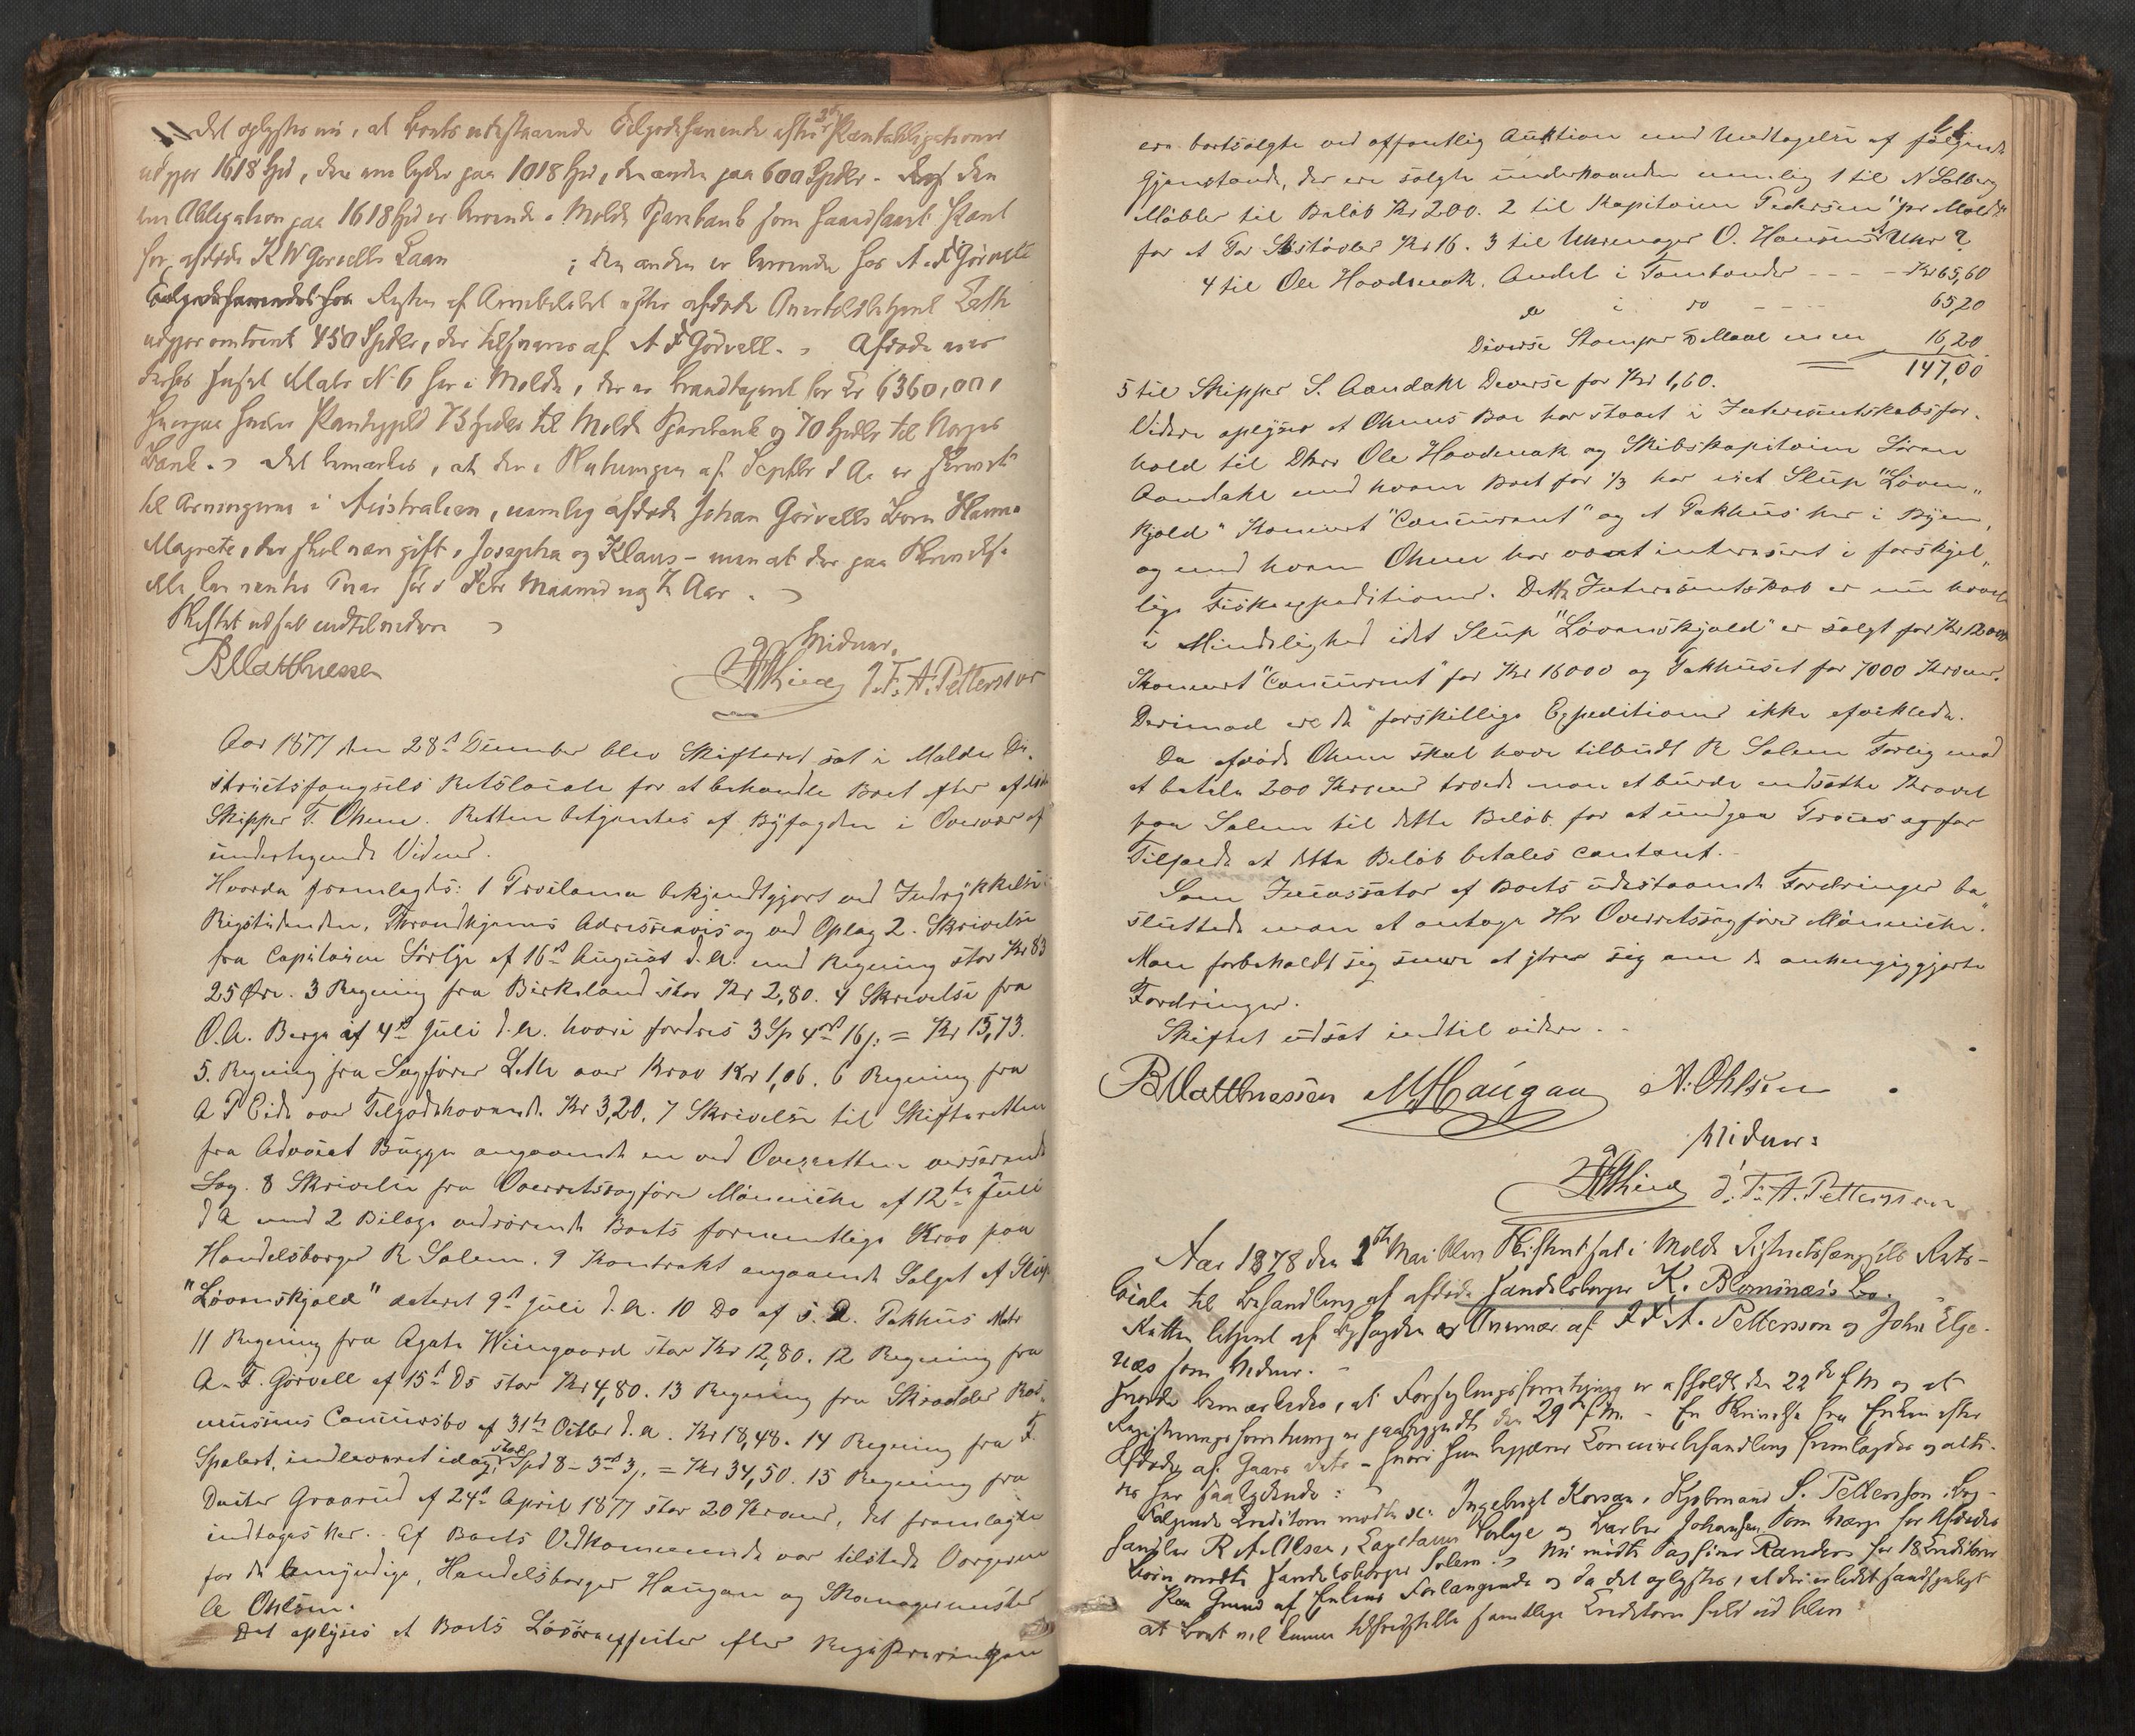 Det oplystes nu, at Boets udestaaende Tilgodehavende efter 2de Pantobligationer
udgjør 1618 Spd, den ene lyder paa 1018 Spd, den anden paa 600 Spdlr. Den
ene Obligation paa 1618 Spd er beroende i Molde Sparebank som haandfaaet Pant
for afdøde K W Gørvells Laan ; den anden er beroende hos A. F. Gørvell
Resten af Arvebeløbet efter afdøde Overtoldbetjent Leth
udgjør omtrent 450 Spdlr, der tilsvares af A F Gørvell. Afdøde var
Huset Matr N 6 her i Molde, der er brandtaxeret for Kr 6360,00,
hvorpaa hviler Pantegjeld 73 Spdlr til Molde Sparebank og 70 Spdlr til Norges
Bank. Det bemærkes, at der i Slutningen af Septbr d A. er skrevet
til Arvingerne i Australien, nemlig afdøde Johan Gørvells Børn Hanna
Magrete, der skal være gift, Josepha og Klaus – men at der paa Skrivelse
kan ventes Svar før i Febr Maaned næste Aar.
Skiftet udsat indtil videre
BMatthiessen
Vidner.
J. F. A. Pettersson
Aar 1877 den 28de December blev Skifteret sat i Molde Di-
strictsfængsels Retslocale for at behandle Boet efter afdøde
Skipper T. Ohme. Retten betjentes af Byfogden i Overvær af
undertegnede Vidner.
Hvorda fremlagdes: 1 Proclama bekjendtgjort ved Indrykkelse i
Rigstidenden, Throndhjems Adresseavis og ved Opslag 2. Skrivelse
fra Capitainen Sørlye af 16de August d. A. med Regning stor Kr 83
25 Øre. 3 Regning fra Birkeland stor Kr 2,80. 4 Skrivelse fra
O. A. Berge af 4de Juli d. A. hvori fordres 3 Sp 4ort 16 s. = Kr 15,73.
5. Regning fra Sagfører Leth over Krav Kr 1,06. 6 Regning fra
A P Eide over Tilgodehavende Kr 3,20. 7 Skrivelse til Skifteretten
fra Advocat Bugge angaaende en ved Overretten verserende
Sag. 8 Skrivelse fra Overretssagfører Mønniche af 12te Juli
d A med 2 Bilage vedrørende Boets formentlige Krav paa
Handelsborger R Solem. 9 Kontrakt angaaende Salget af Slup
"Løvenskjold" dateret 9de Juli d. A. 10 Do af s. D. Pakhus Matr
11 Regning fra Agate Wiingaard stor Kr 12,80. 12 Regning fra
A. F. Gørvell af 15de Ds stor Kr 4,80. 13 Regning fra Skrædder Ras-
mussens Concursbo af 31te Octbr d. A. Kr 18,48. 14 Regning fra F.
Spalert, indleveret idag, stor Spd 8 – 3ort 3 s. = Kr 34,50. 15 Regning fra
Doctor Graarud af 24de April 1877 stor 20 Kroner, det fremlagte
indtages her. Af Boets Vedkommende var tilstede Værgerne
for de Umyndige, Handelsborger Haugan og Skomagermester
A Ohlsen.
Det oplyses at Boets Løsøreeffecter efter Registreringen
ere bortsolgte ved offentlig Auktion med Undtagelse af følgende
Gjenstande, der ere solgte underhaanden nemlig 1 til N Solberg
Møbler til Beløb Kr 200. 2 til Kapitainen Pedersen "pr Molde"
for et Par Søstøvler Kr 16. 3 til Uhrmager O. Hansen et Uhr ?
4 til Ole Hoodenak, Andel i Tombønder - - - - Kr 65,60
do i do - - - - 65,20
Diverse Stamper 16,20
147,00
5 til Skipper S. Aandahl Diverse for Kr 1,60.
Videre oplyses at Ohmes Boe har staaet i Interessentskabsfor-
hold til Dhrr Ole Hoodenak og Skibskapitainen Søren
Aandahl med hvem Boet for 1/3 har eiet Slup "Løven"
kjold" Skonnert "Concurrent" og et Pakhus her i Byen,
og med hvem Ohme har været interesseret i forskjel"
lige Fiskeexpeditioner. Dette Interessentskab er nu hævet
i Mindelighed idet Slup "Løvenskjold" er solgt for Kr 12000
Skonnert "Concurrent" for Kr 16000 og Pakhuset for 7000 Kroner.
Derimod ere de forskjellige Expeditioner ikke afviklede.
Da afdøde Ohme skal have tilbudt R Solem Forlig mod
at betale 200 Kroner troede man at burde nedsætte Kravet
paa Solem til dette Beløb for at undgaa Proces og for
Tilfælde at dette Beløb betales contant.
Som Incassator af Boets udestaaende Fordringer be"
sluttede man at antage Hr Overretssagfører Mønniche.
Man forbeholdt sig senere at ytre sig om de anhængiggjorte
Fordringer.
Skiftet udsat indtil videre.
BMatthiessen MHaugan A. Ohlsen
Vidner:
J. F. A. Pettersson
Aar 1878 den 1ste Mai blev Skifteret sat i Molde Districtsfængsels Rets-
locale til Behandling af afdøde Handelsborger K. Blomnæs's Bo.
Retten betjent af Byfogden i Overvær af J F A. Pettersson og John Elge-
næs som Vidner.
Hvorda bemærkedes, at Forseglingsforretning er afholdt den 22de f M og at
Registreringsforretning er paabegyndt den 29de f M. – En Skrivelse fra Enken efter
Afdøde af Gaars Dato – hvori hun begjærer Concursbehandling fremlagdes og alti-
res her saalydende:
Følgende Creditorer mødte sc: Ingebrigt Korsan, Kjøbmand S. Pettersson, Bog-
handler R A. Olsen, Capitain Sørlye og Barber Johansen. Som Værge for Afdødes
Børn mødte Handelsborger Solem. Nu mødte Sagfører Randers for 18 Creditorer
Paa Grund af Enkens Forlangende og da det oplystes, at det er lidet sandsynligt
at Boet vil kunne tilfredsstille samtlige Creditorer fuldt ud blev